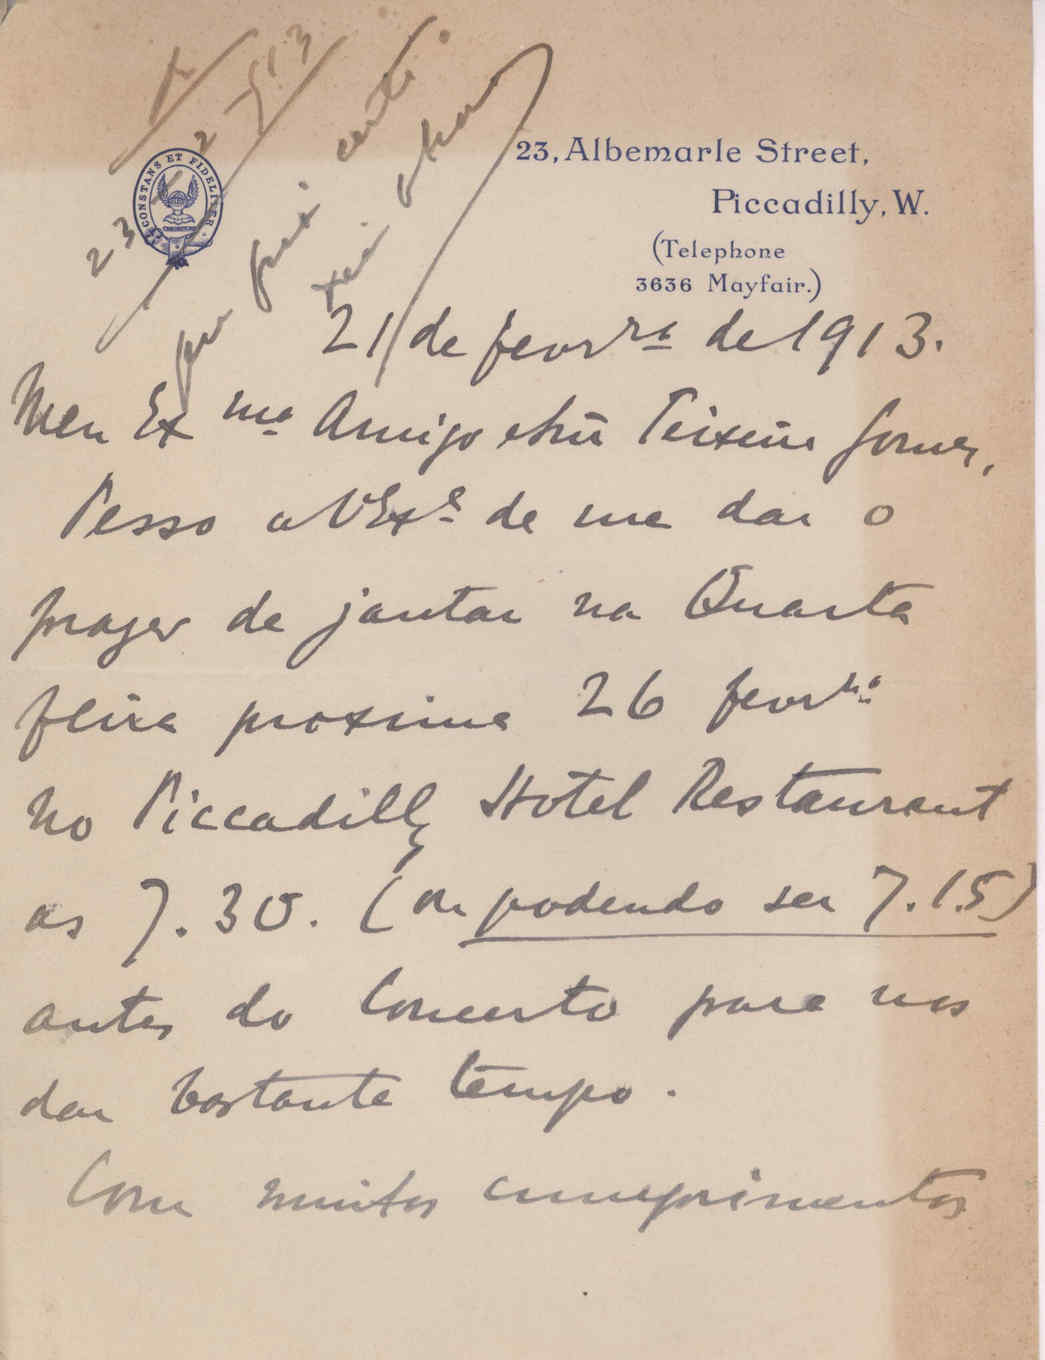 R
23-2-913
CONSTANS ET FIDELITER
23, Albemarle Street,
Piccadilly, W.
(Telephone
3636 Mayfair.)
21 de fevrº de 1913.
Meu Exmº Amigo e Snr Teixeira Gomes,
Pesso a VExª de me dar o
prazer de jantar na Quarta
feira proxima 26 fevrº
no Piccadilly Hotel Restaurant
as 7.30. (ou podendo ser 7.15)
antes do Concerto para nos
dar bastante tempo.
Com muitos cumprimentos